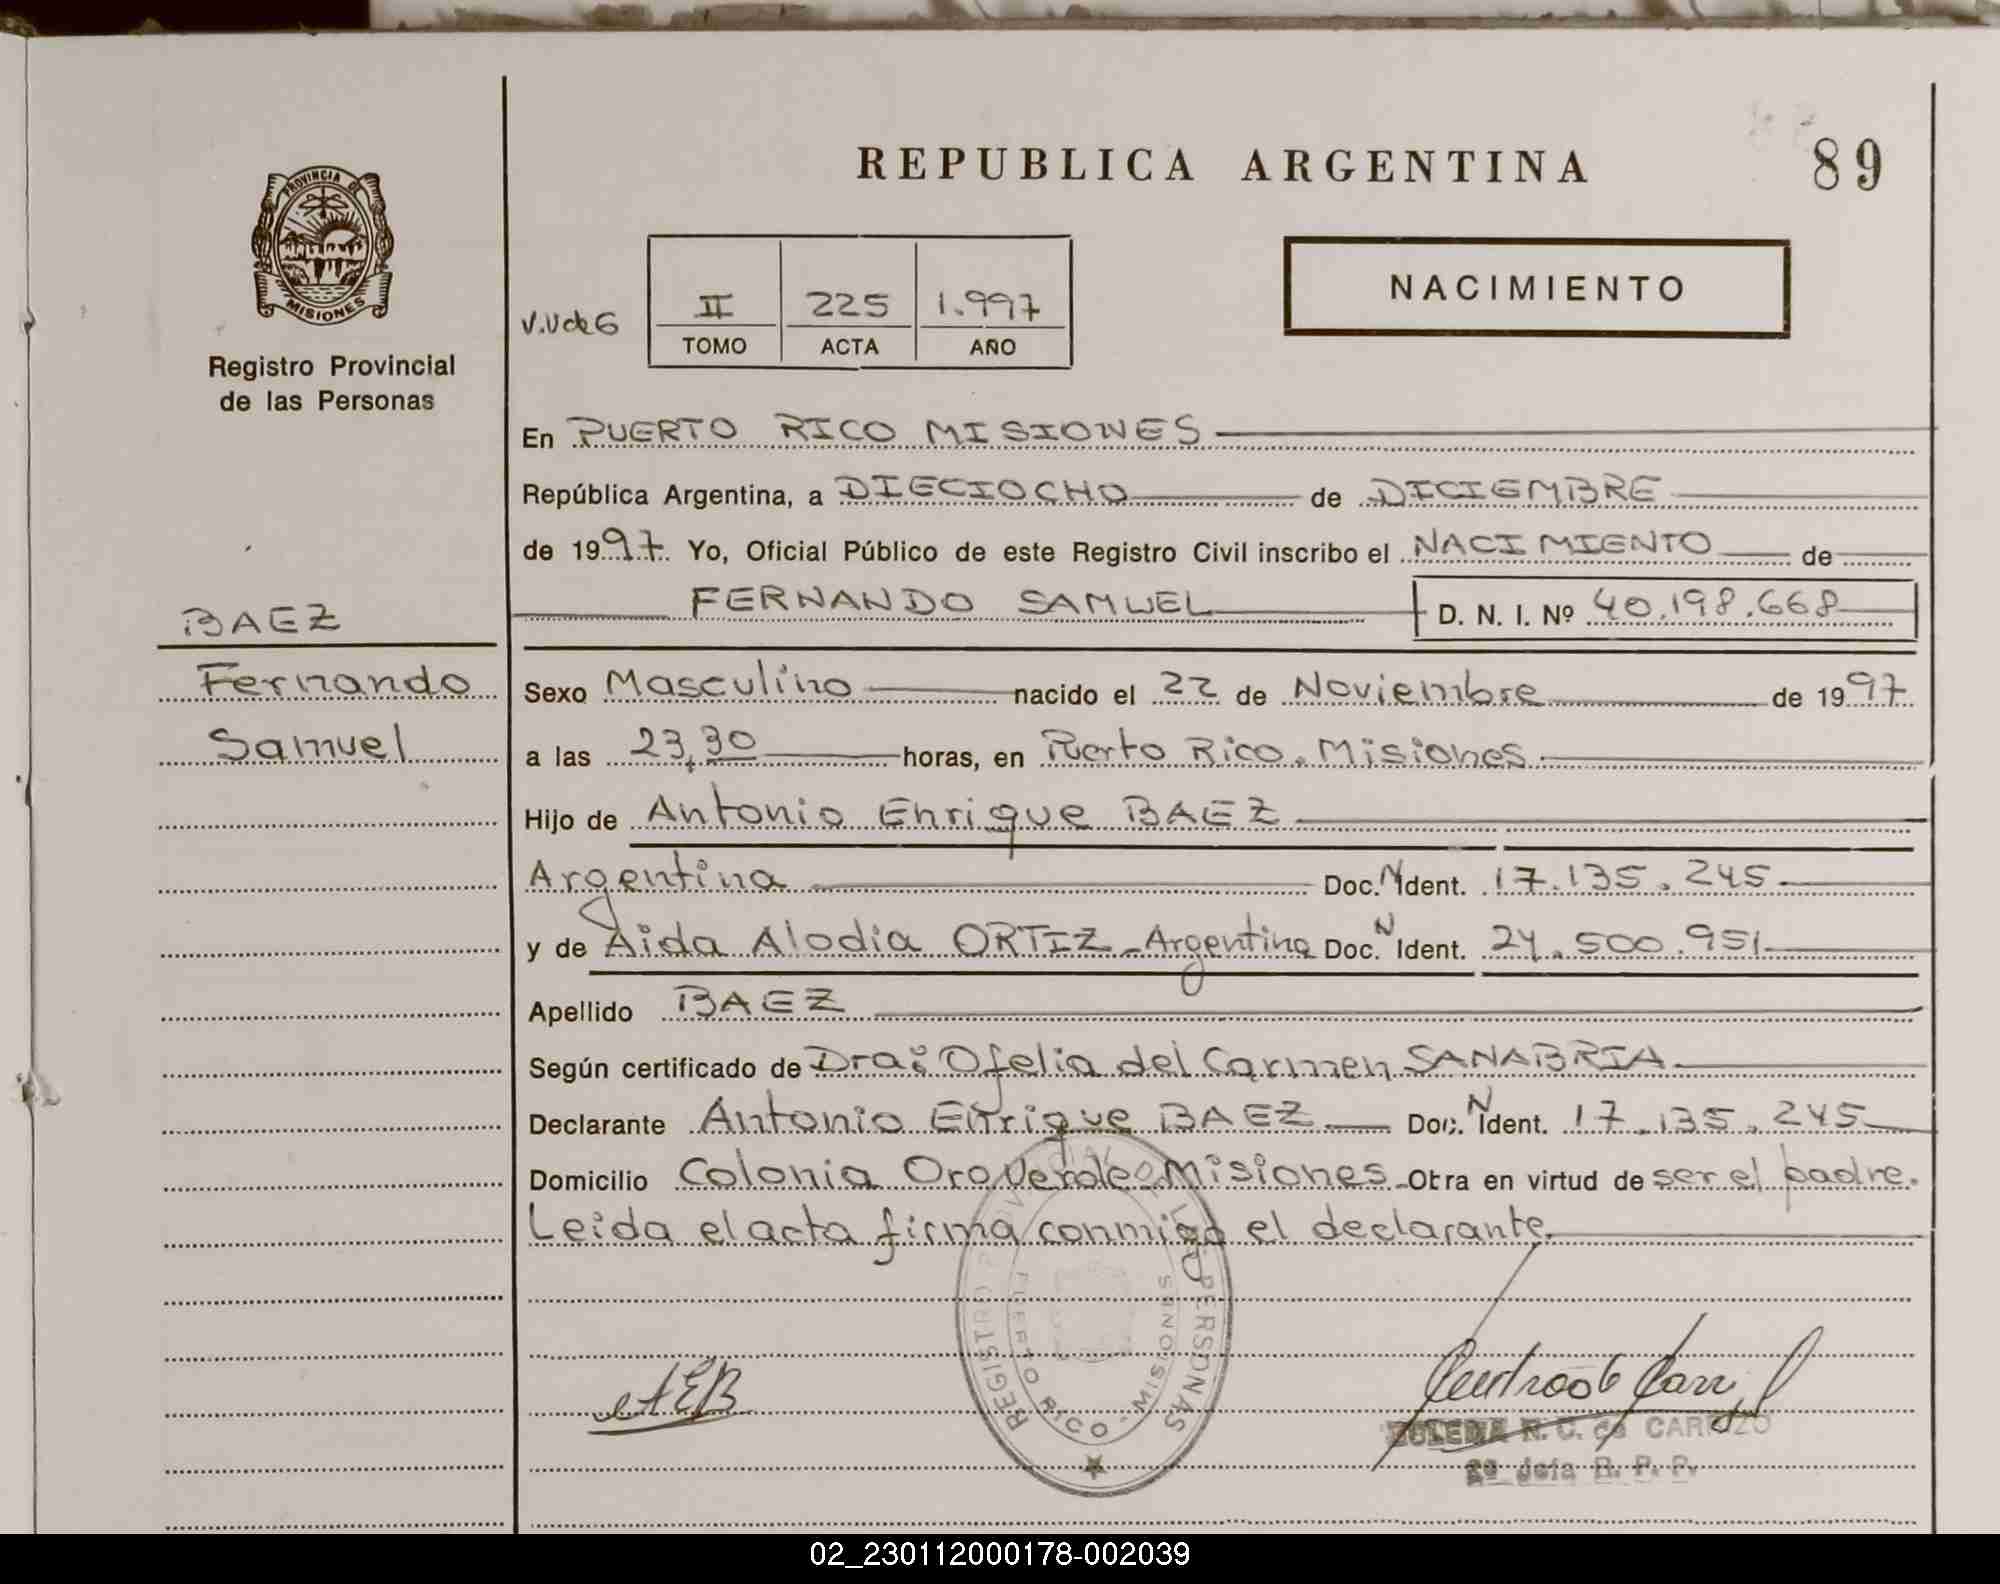 REPUBLICA ARGENTINA
89
PROVINCIA DE
MISIONES
Registro Provincial
de las Personas
NACIMIENTO
II 225 1.997
TOMO ACTA AÑO
En PUERTO RICO MISIONES
República Argentina, a DIECIOCHO de DICIEMBRE
de 1997 Yo, Oficial Público de este Registro Civil inscribo el NACIMIENTO de
FERNANDO SAMUEL D. N. I. Nº 40.198.668
BAEZ
Fernando
Samuel
Sexo Masculino nacido el 22 de Noviembre de 1997
a las 23,30 horas, en Puerto Rico. Misiones
Hijo de Antonio Enrique BAEZ
Argentina Doc. N Ident. 17.135.245
y de Aida Alodia ORTIZ - Argentina Doc. N Ident. 24.500.951
Apellido BAEZ
Según certificado de Dra: Ofelia del Carmen SANABRIA
Declarante Antonio Enrique BAEZ Doc. N Ident. 17.135.245
Domicilio Colonia Oro Verde Misiones - Obra en virtud de ser el padre.
Leida el acta firma conmigo el declarante.
REGISTRO PROVINCIAL DE LAS PERSONAS
PUERTO RICO - MISIONES
AEB
N. C. de CARRIZO
2º Jefa R. P. P.
02_230112000178-002039